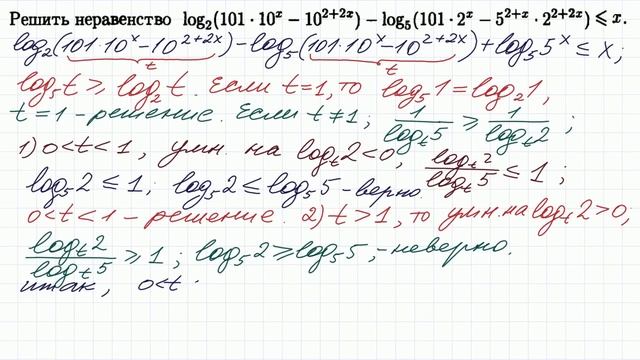 Решить неравенство log₂(101 · 10ˣ − 10²⁺²ˣ) − log₅(101 · 2ˣ − 5²⁺ˣ · 2²⁺²ˣ) ⩽ x.
log₂(101·10ˣ−10²⁺²ˣ)−log₅(101·10ˣ−10²⁺²ˣ)+log₅5ˣ ≤ x;
t t
log₅t ≥ log₂t. Если t=1, то log₅1=log₂1,
t=1 - решение. Если t≠1; 1/logₜ5 ≥ 1/logₜ2;
1) 0<t<1, умн. на logₜ2<0, logₜ2/logₜ5 ≤ 1;
log₅2 ≤ 1; log₅2 ≤ log₅5 - верно.
0<t<1 - решение. 2) t>1, то умн. на logₜ2>0;
logₜ2/logₜ5 ≥ 1; log₅2 ≥ log₅5, - неверно.
итак, 0<t